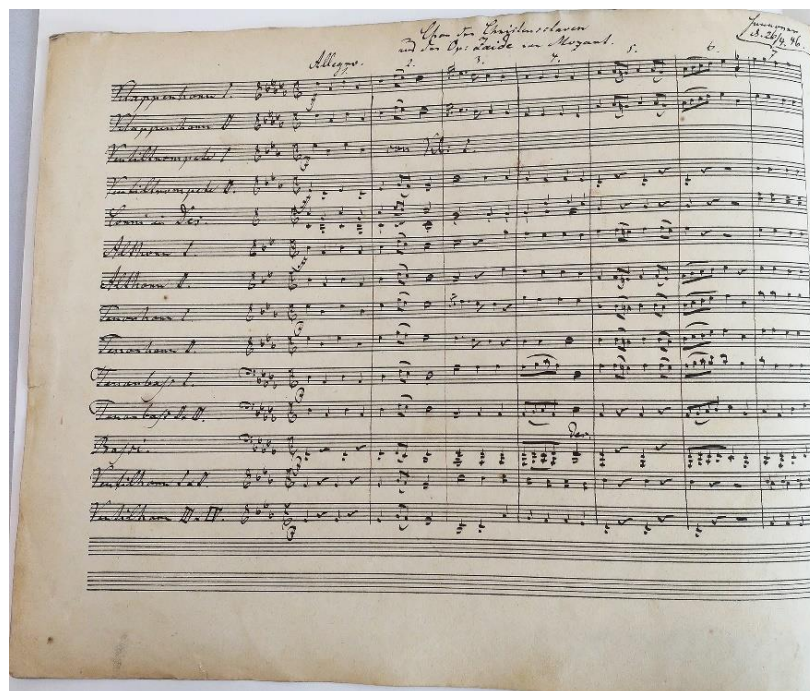 Chor der Christensclaven
aus der Op: Zaide von Mozart.
Hannover
d. 26/4. 46
Allegro. 2. 3. 4. 5. 6. 7
Klappenhorn I.
Klappenhorn II
Ventiltrompete I
Ventiltrompete II.
Corni in Des.
Althorn I.
Althorn II.
Tenorhorn I.
Tenorhorn II.
Tenorbass I.
Tenorbass II.
Bassi.
Ventilhorn I et II.
Ventilhorn III. IV.